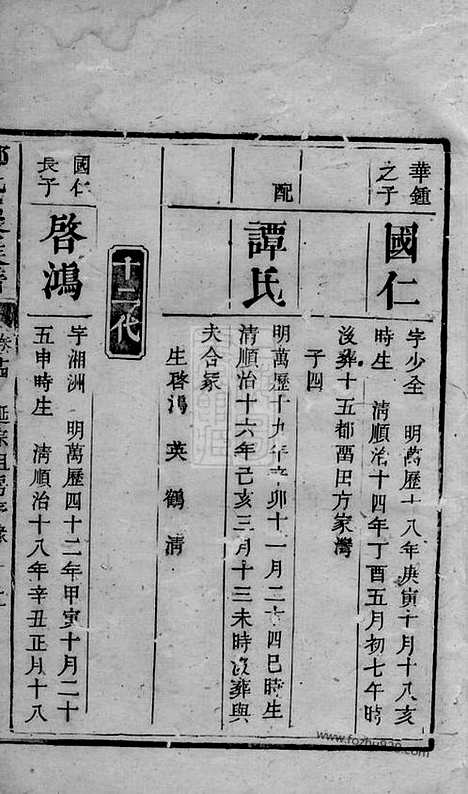 華鍾之子
國仁
字少全 明萬歷十八年庚寅十月十八亥
時生 清順治十四年丁酉五月初七午時
沒葬十五都畱田方家灣
子四
配
譚氏
明萬歷十九年辛卯十一月二十四巳時生
清順治十六年己亥三月十三未時沒葬與
夫合冢
生啓鴻 英 鶴 清
十二代
國仁長子
啓鴻
字湘洲 明萬歷四十二年甲寅十月二十
五申時生 清順治十八年辛丑正月十八
www.fozhu920.com